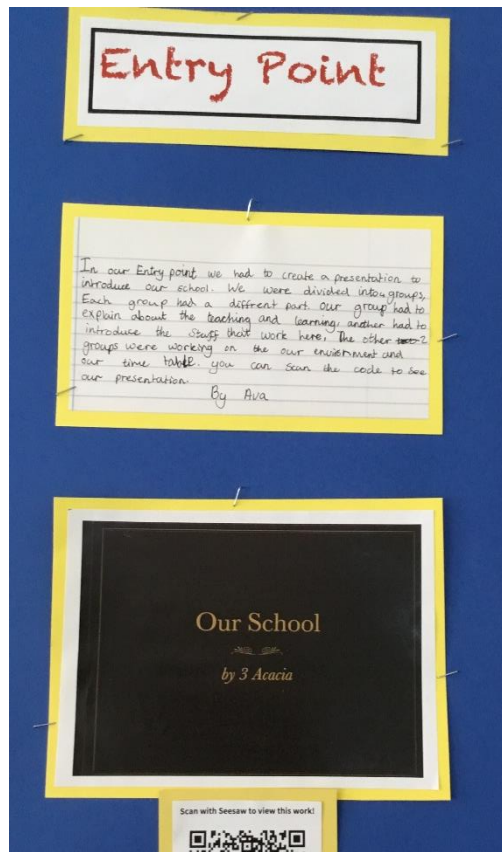 Entry Point
In our Entry point we had to create a presentation to
introduce our school. We were divided into 4 groups,
Each group had a diffrent part. Our group had to
explain about the teaching and learning, another had to
introduce the staff that work here, The other 2
groups were working on the our envirnment and
our time table. you can scan the code to see
our presentation.
By Ava
Our School
by 3 Acacia
Scan with Seesaw to view this work!